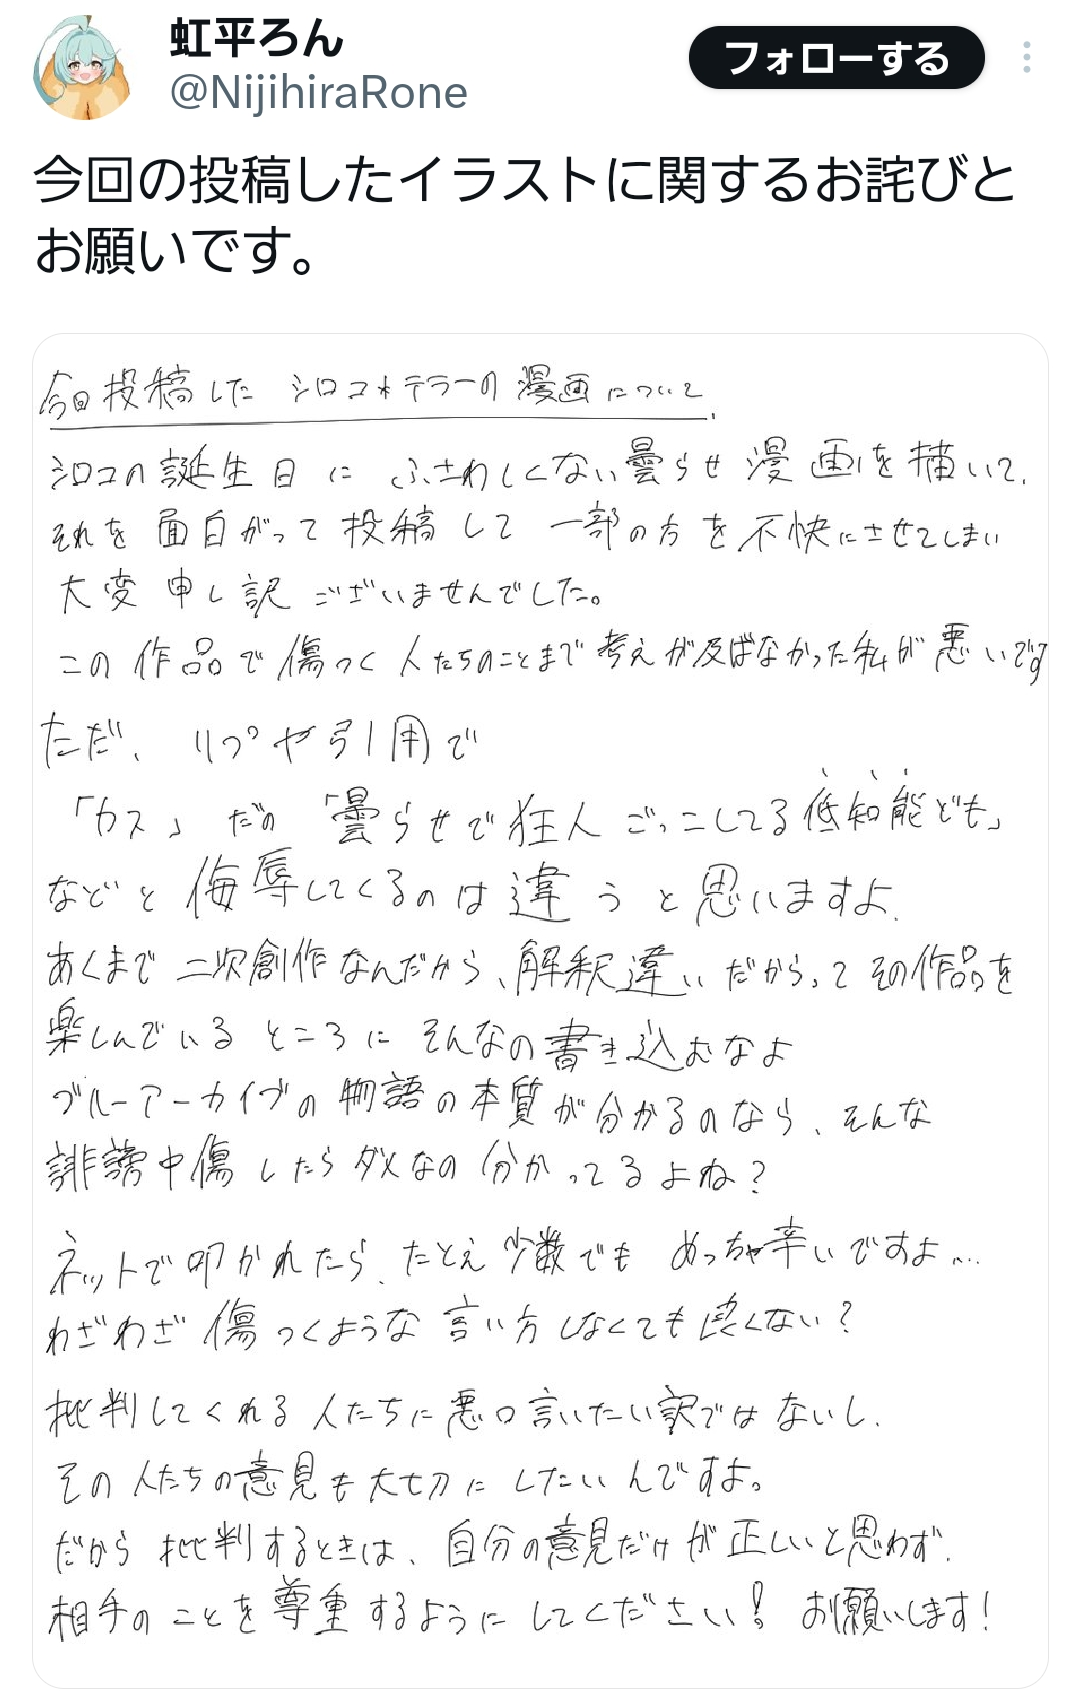 虹平ろん
@NijihiraRone
フォローする
今回の投稿したイラストに関するお詫びと
お願いです。
今回投稿した シロコ*テラーの漫画について.
シロコの誕生日にふさわしくない曇らせ漫画を描いて、
それを面白がって投稿して一部の方を不快にさせてしまい
大変申し訳ございませんでした。
この作品で傷つく人たちのことまで考えが及ばなかった私が悪いです
ただ、リプや引用で
「カス」だの「曇らせで狂人ごっこしてる低知能ども」
などと侮辱してくるのは違うと思いますよ.
あくまで二次創作なんだから、解釈違いだからってその作品を
楽しんでいるところにそんなの書き込むなよ
ブルーアーカイブの物語の本質が分かるのなら、そんな
誹謗中傷したらダメなの分かってるよね?
ネットで叩かれたら、たとえ少数でもめっちゃ辛いですよ...
わざわざ傷つくような言い方しなくても良くない?
批判してくれる人たちに悪口言いたい訳ではないし、
その人たちの意見も大切にしたいんですよ。
だから批判するときは、自分の意見だけが正しいと思わず、
相手のことを尊重するようにしてください! お願いします!